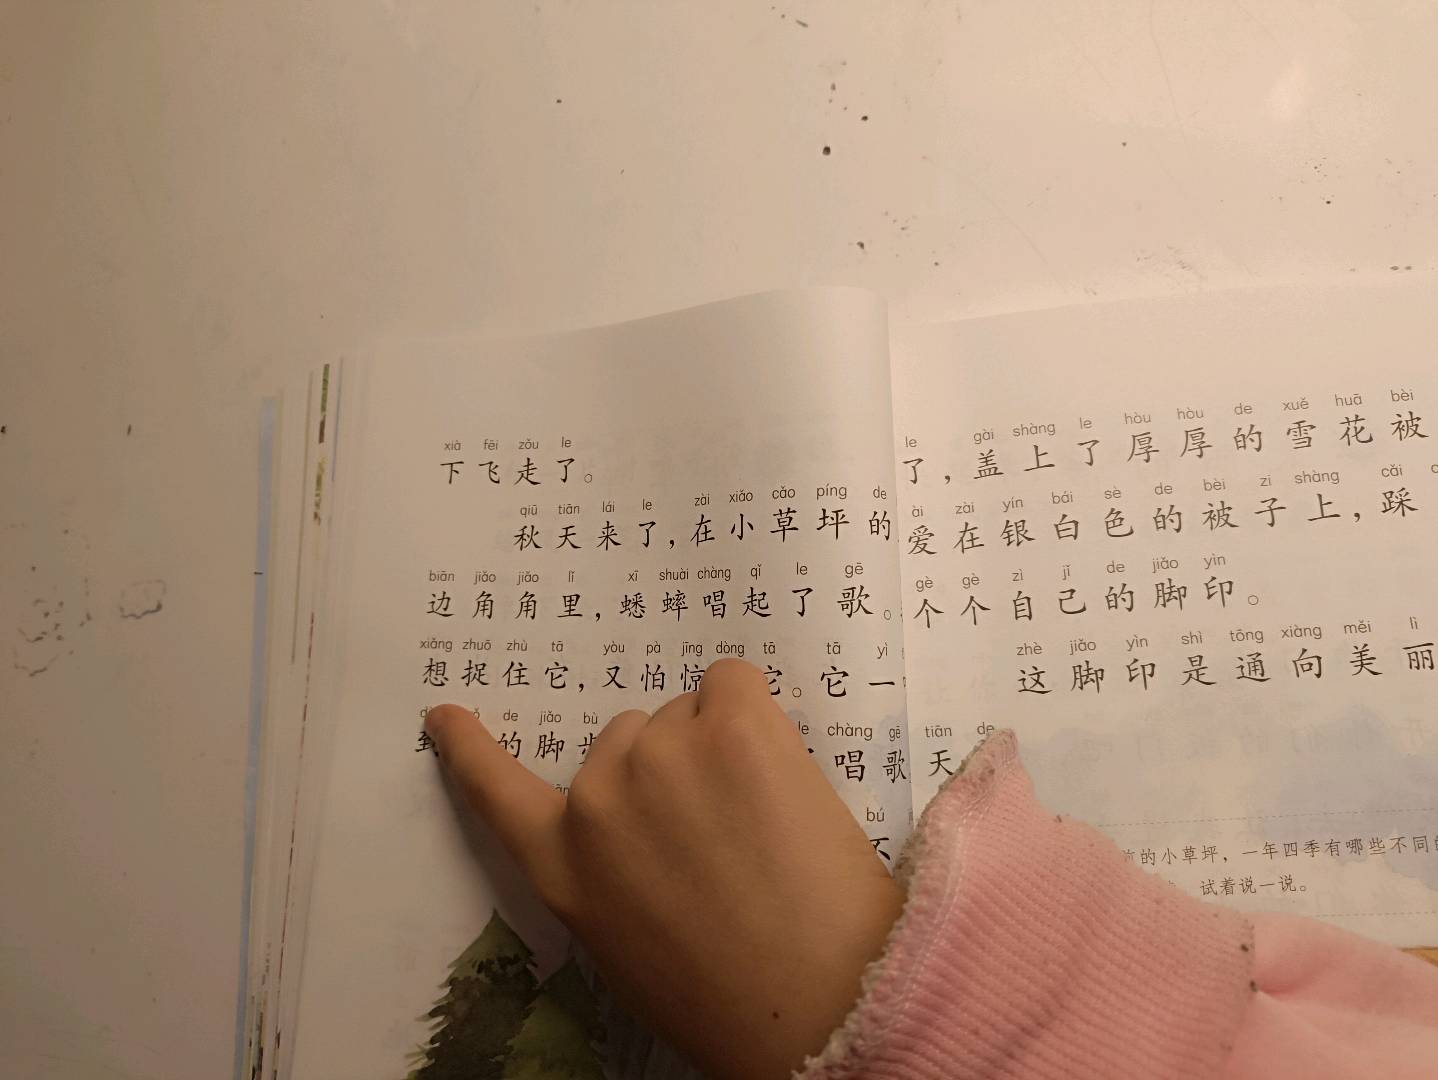 xià fēi zǒu le
下飞走了。
qiū tiān lái le zài xiǎo cǎo píng de
秋天来了，在小草坪的
biān jiǎo jiǎo lǐ xī shuài chàng qǐ le gē
边角角里，蟋蟀唱起了歌。
xiǎng zhuō zhù tā yòu pà jīng dòng tā tā yì
想捉住它，又怕惊它。它一
de jiǎo bù le chàng gē
到的脚步唱歌
bú
不
le gài shàng le hòu hòu de xuě huā bèi
了，盖上了厚厚的雪花被
ài zài yín bái sè de bèi zi shàng cǎi
爱在银白色的被子上，踩
gè gè zì jǐ de jiǎo yìn
个个自己的脚印。
zhè jiǎo yìn shì tōng xiàng měi lì
这脚印是通向美丽
tiān de
天
的小草坪，一年四季有哪些不同
试着说一说。